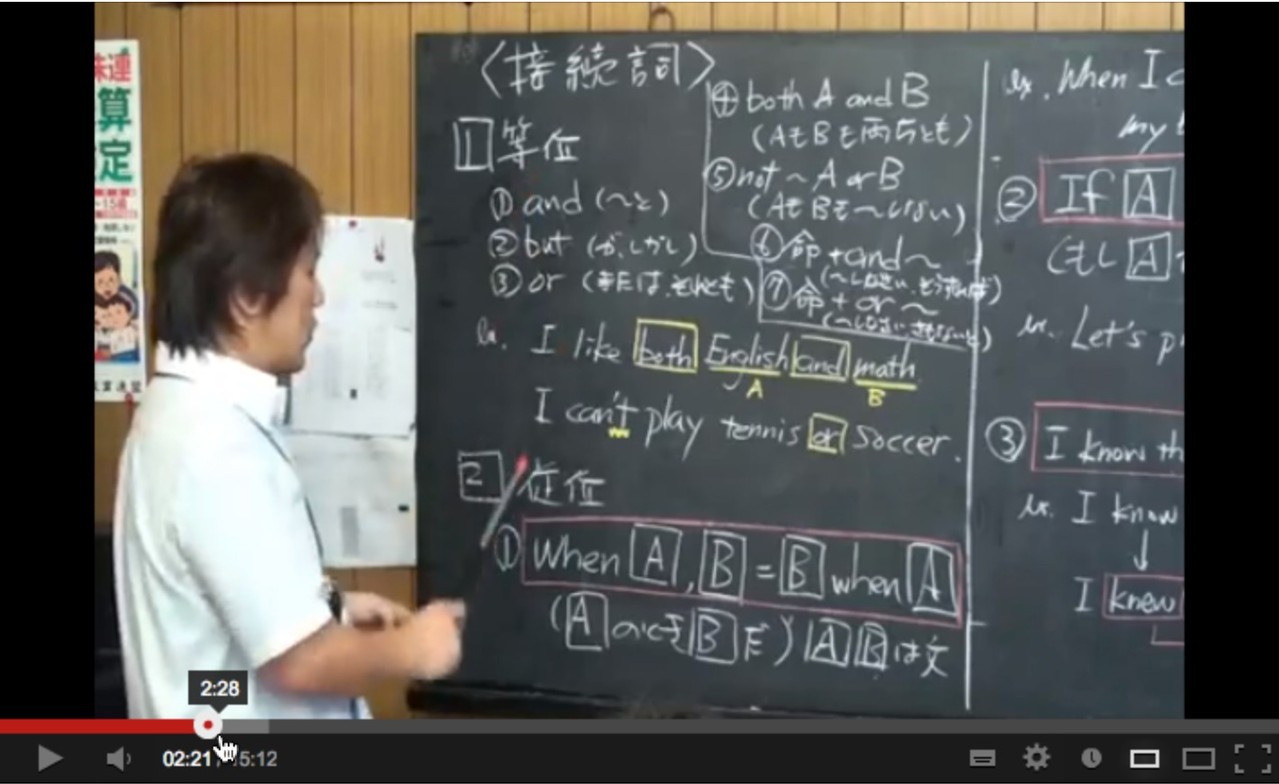 株連
算
定
〈接続詞〉
1 等位
① and (〜と)
② but (が,しかし)
③ or (または,それとも)
④ both A and B
(AもBも両方とも)
⑤ not ~ A or B
(AもBも〜しない)
⑥ 命 + and ~
(〜しなさい,そうすれば)
⑦ 命 + or ~
(〜しなさい,さもないと)
ex. I like both English and math
A B
I can't play tennis or soccer.
2 従位
① When A, B = B when A
(Aのとき B だ) A B は文
ex. When I
my
② If A
(もし A
ex. Let's p
③ I know th
ex. I know
↓
I knew
2:28
02:21 / 5:12